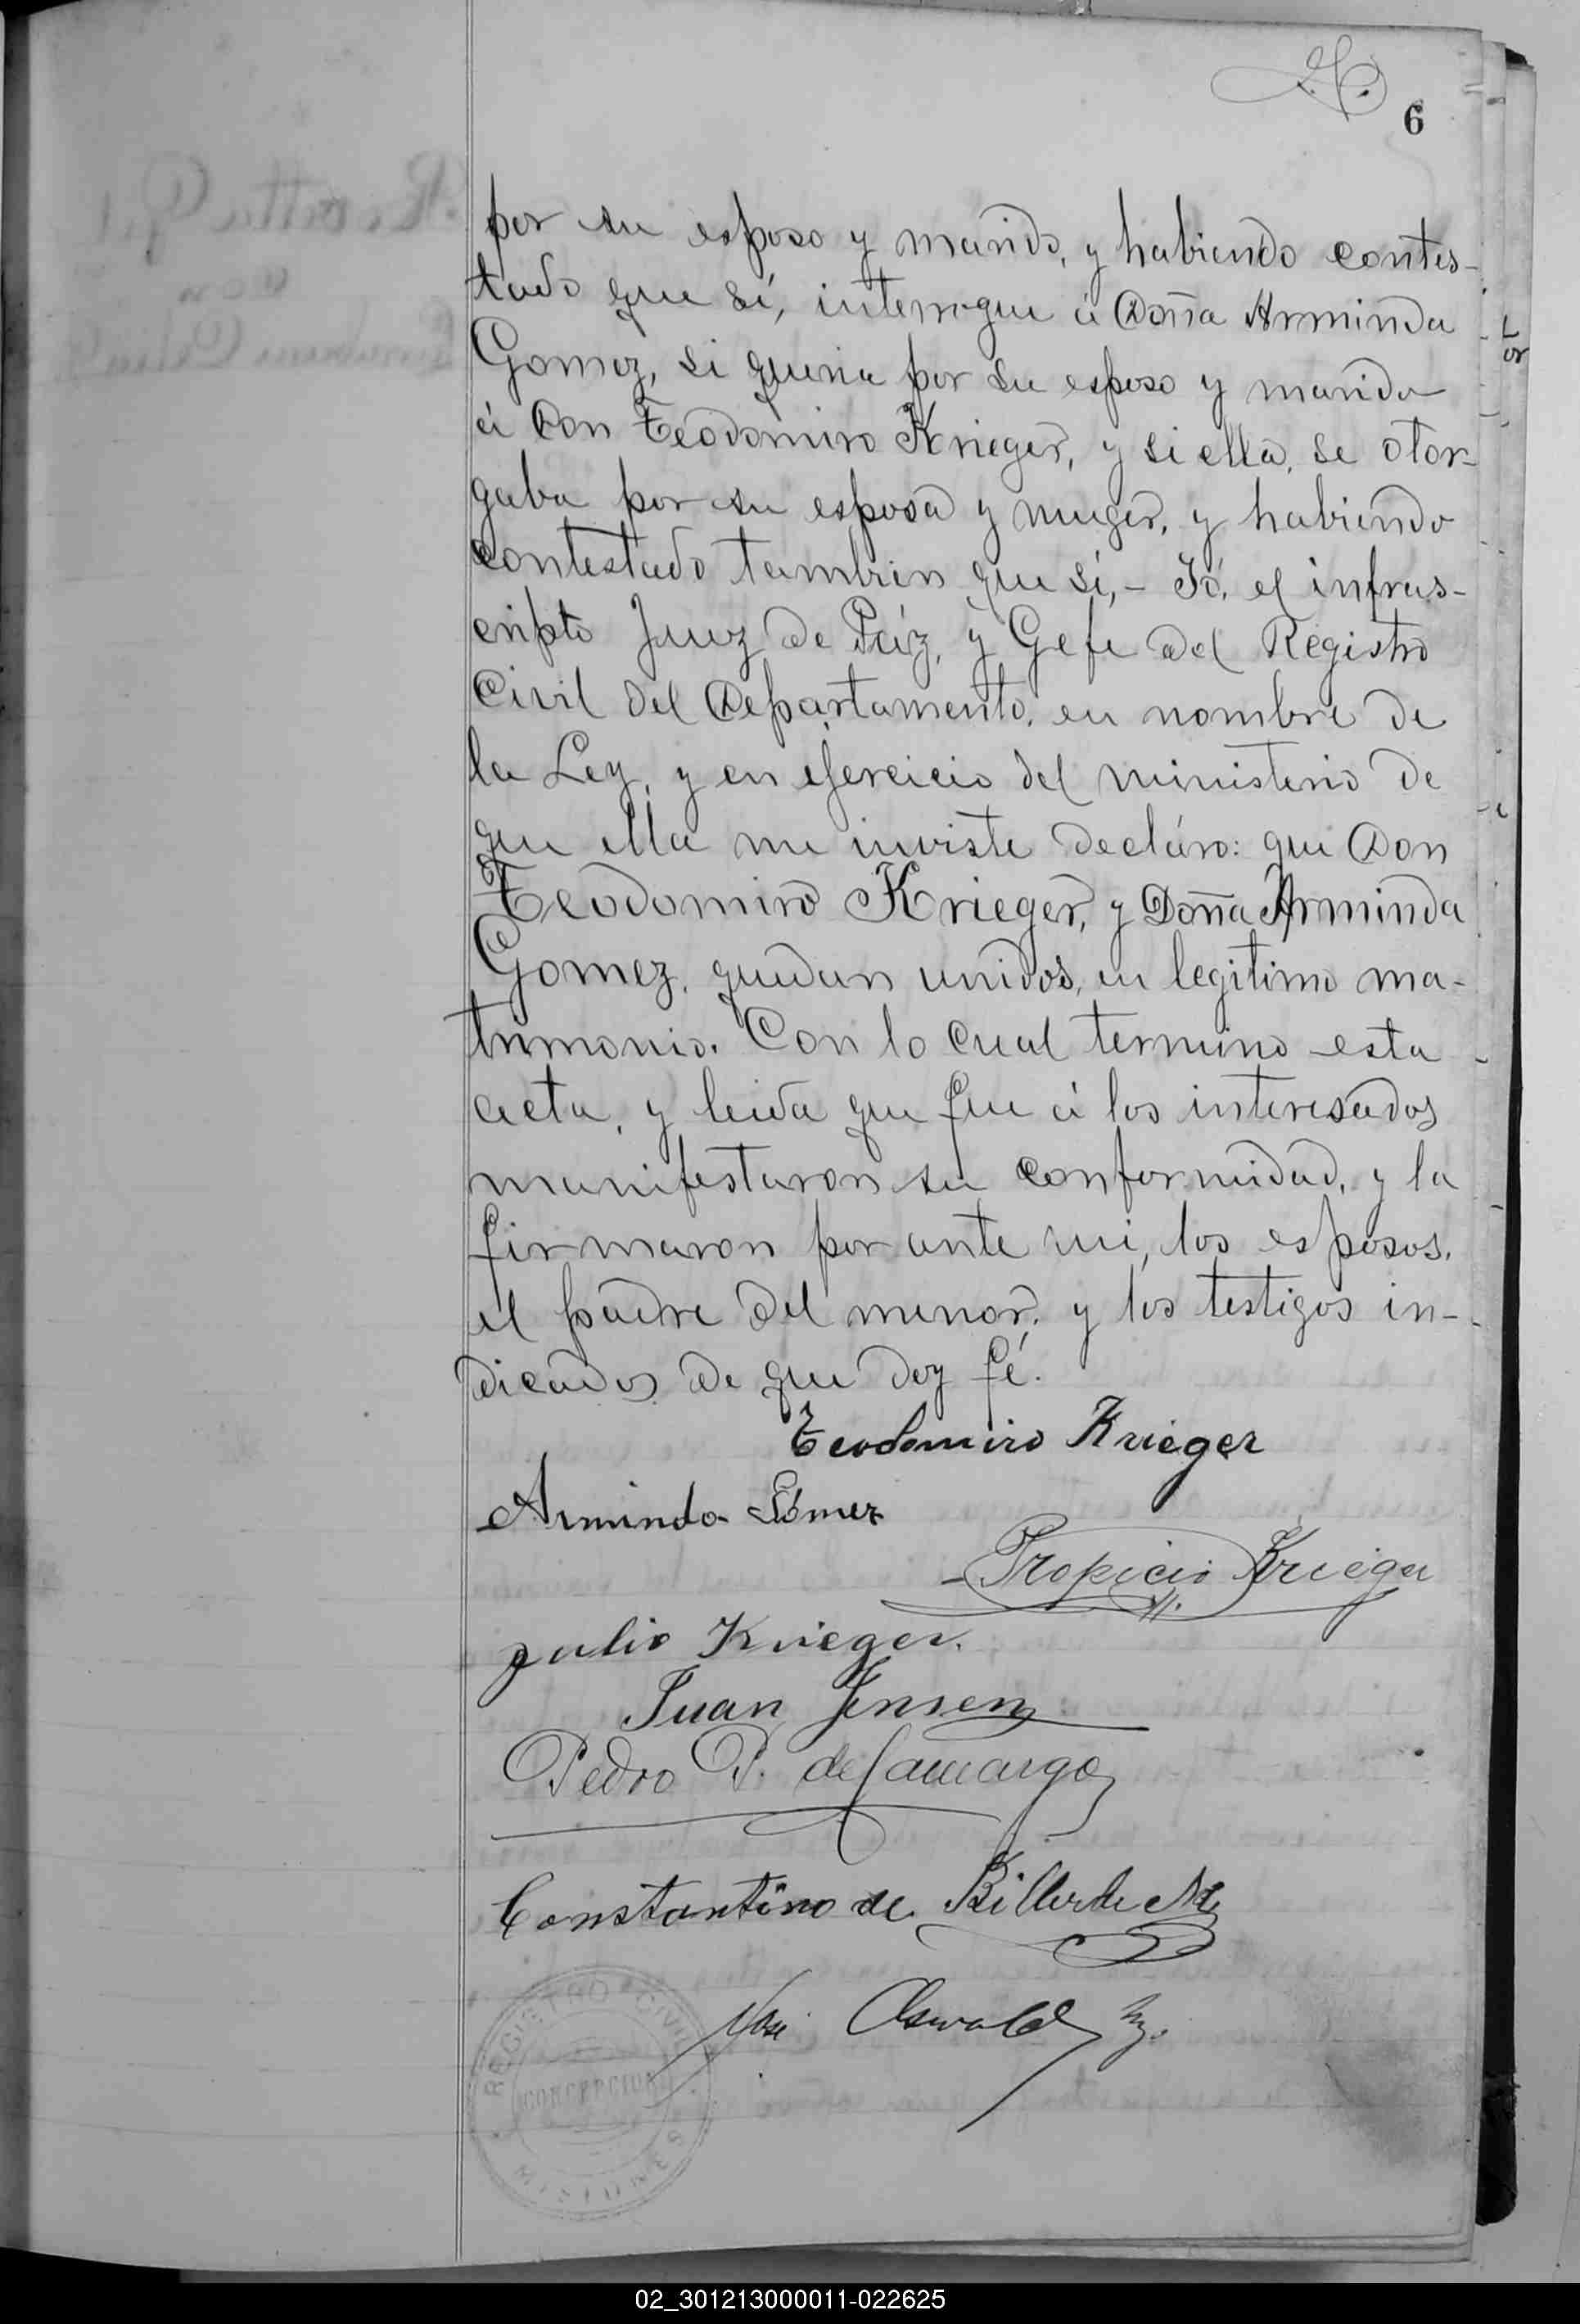 6
por su esposo y marido, y habiendo contes-
tado que sí, interrogue á Doña Arminda
Gomez, si queria por su esposo y marido
á Don Teodomiro Krieger, y si ella, se otor-
gaba por su esposa y muger, y habiendo
contestado tambien que sí,- Yó, el infras-
cripto Juez de Páz, y Gefe del Registro
Civil del Departamento, en nombre de
la Ley, y en ejercicio del ministerio de
que ella me inviste decláro: que Don
Teodomiro Krieger, y Doña Arminda
Gomez, quedan unidos, en legitimo ma-
trimonio. Con lo cual termino esta
acta, y leida que fue á los interesados
manifestaron su conformidad, y la
firmaron por ante mi, los esposos,
el padre del menor, y los testigos in-
dicados de que doy fé.
Teodomiro Krieger
Arminda Gómez
Propicio Krieger
Julio Krieger.
Juan Jensen
Pedro P. de Camargo
Constantino de
José Oswald
REGISTRO CIVIL
CONCEPCION
MISIONES
02_301213000011-022625